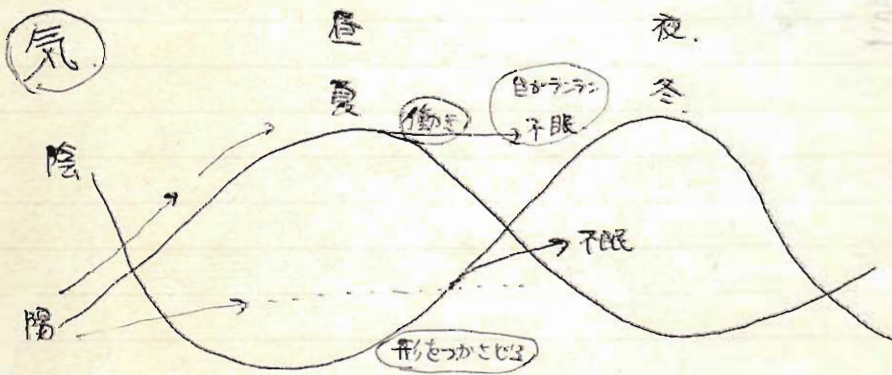 気
昼
夜.
夏
冬.
働き
目がランラン
不眠
陰
不眠
陽
形をつかさどる